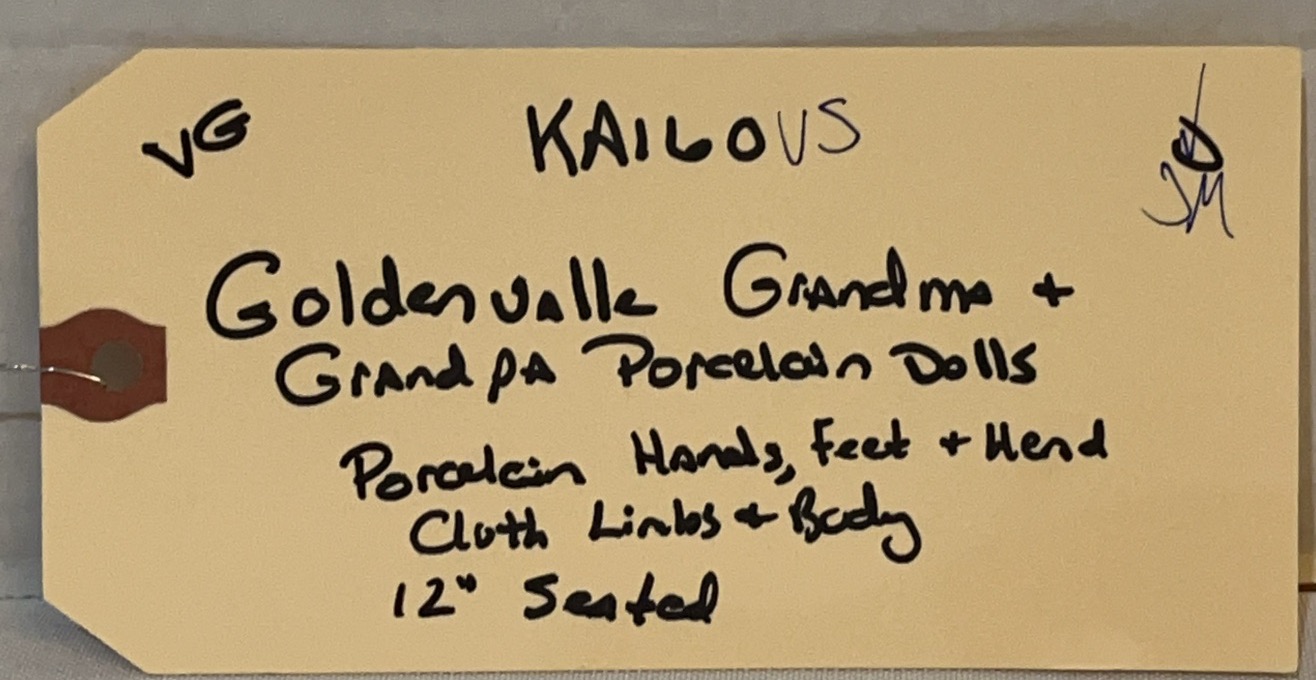 VG
KAILOVS
JM
Goldenvalle Grandma +
Grandpa Porcelain Dolls
Porcelain Hands, Feet + Head
Cloth Limbs + Body
12" Seated